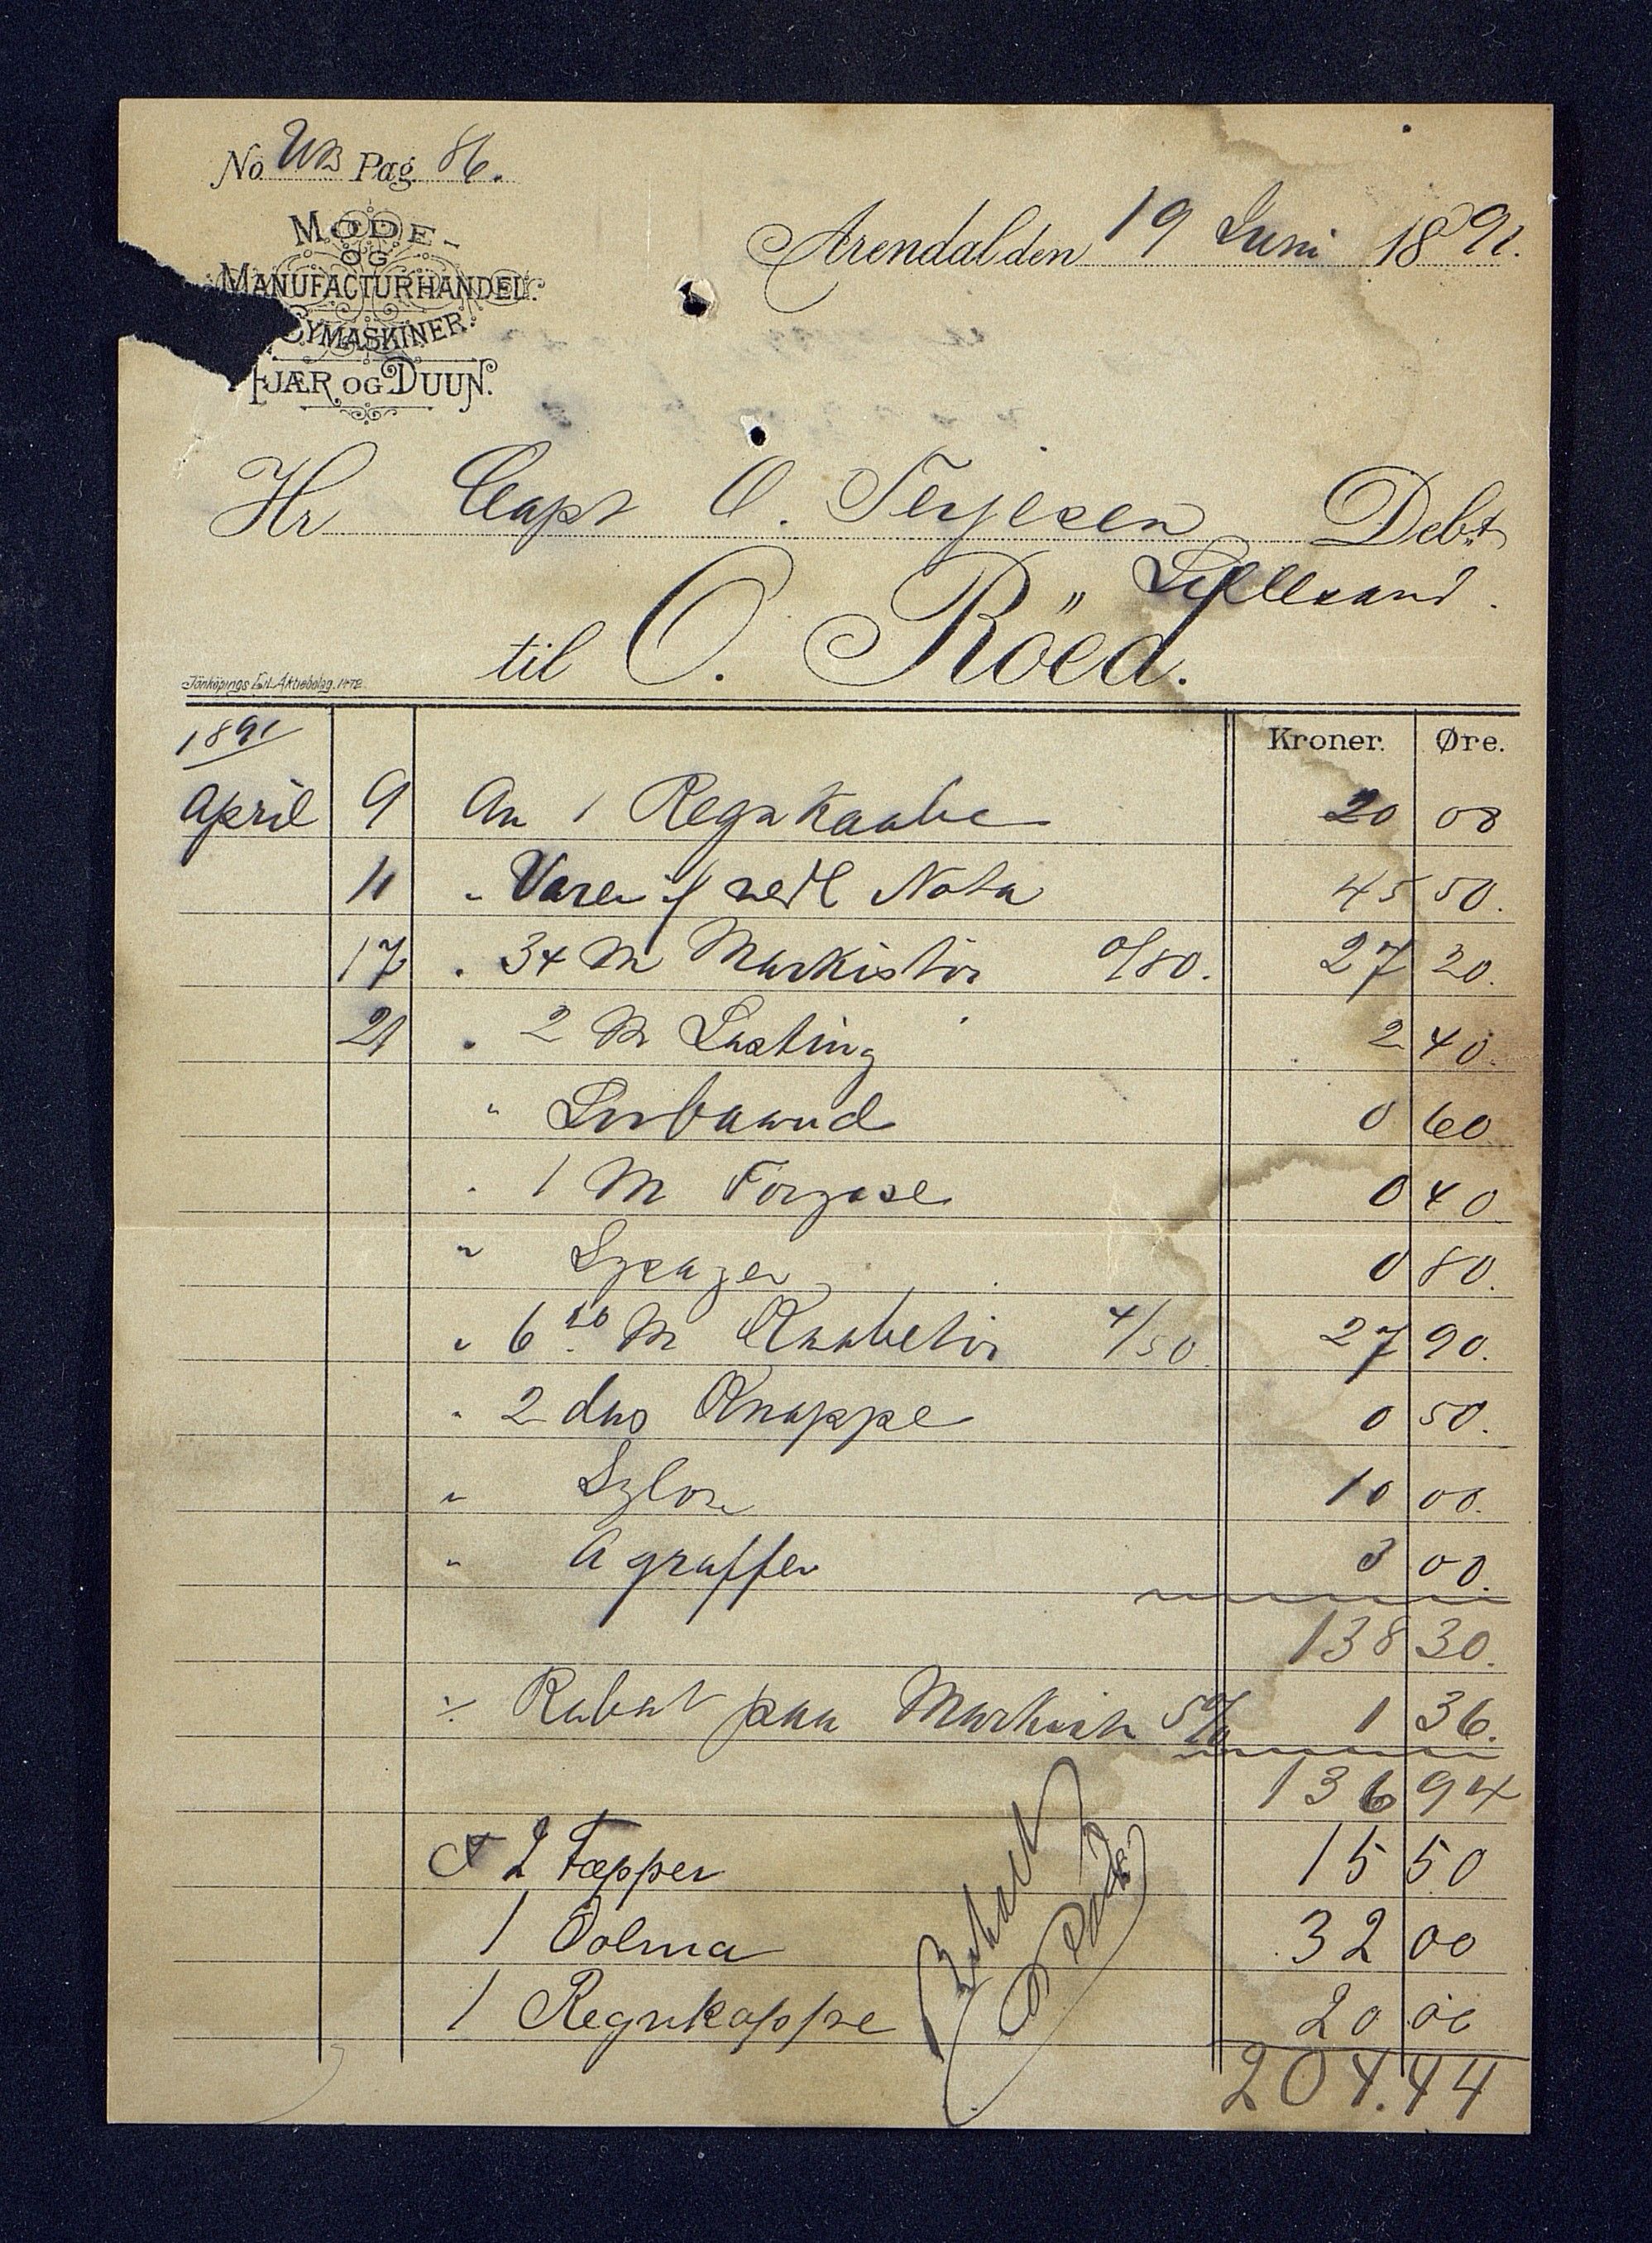 No UB Pag. 86.
MODE-
OG
MANUFACTURHANDEL.
SYMASKINER.
FJÆR OG DUUN.
Arendal den 19 Juni 1891.
Hr Capt O. Terjesen Debt
" Lillesand.
til O. Röed.
Jönköpings Lit. Aktiebolag. 1472
1891 Kroner. Øre.
April 9 An 1 Regnkaabe 20 00
11 " Varer if nedl Nota 45 50.
17 " 34 M Markistöi 0/80. 27 20.
21 " 2 M Lasting 2 40.
" Livbaand 0 60
" 1 M Forgase 0 40
" Sysager 0 80.
" 6 20 M Kaabetöi 4/50 27 90.
" 2 dus Knappe 0 50.
" Syløn 10 00.
" Agraffer 3 00.
138 30.
÷ Rabat paa Markistöi 5% 1 36.
136 94
2 Tæpper 15 50
1 Dolma 32 00
1 Regnkappe 20 00
204.44
Betalt
O Röed